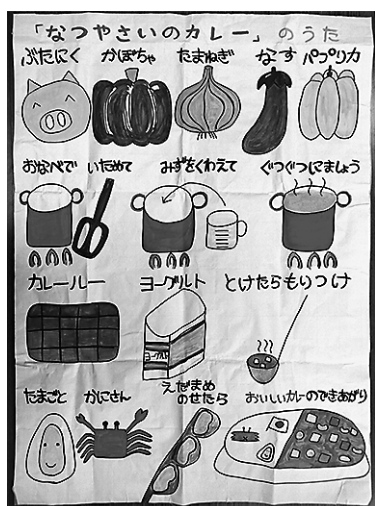 「なつやさいのカレー」のうた
ぶたにく かぼちゃ たまねぎ なす パプリカ
おなべで いためて みずをくわえて ぐつぐつにましょう
カレールー ヨーグルト とけたらもりつけ
ヨーグルト
たまごと かにさん えだまめ のせたら おいしいカレーのできあがり